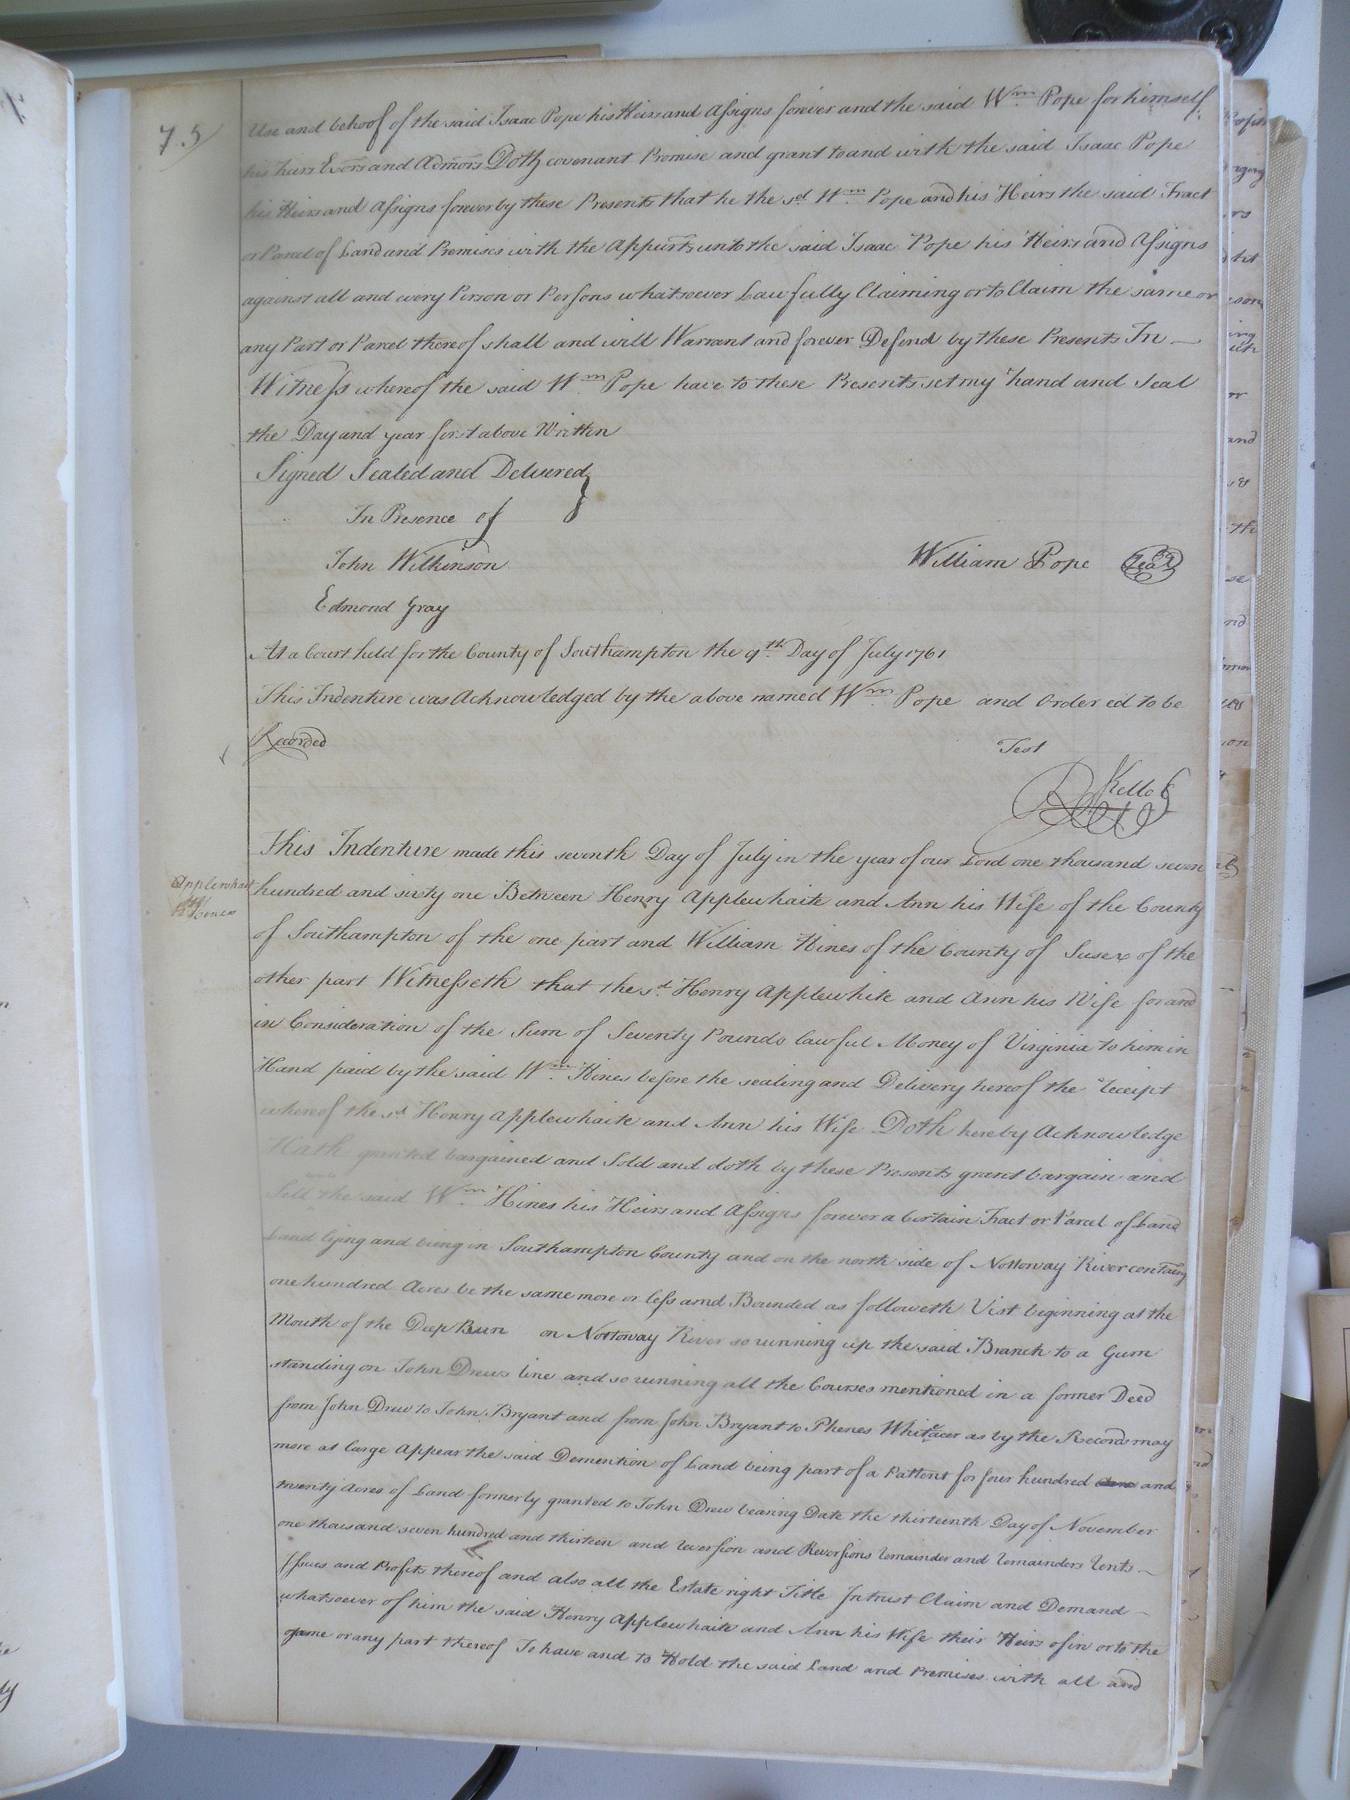 7.5
Use and behoof of the said Isaac Pope his Heirs and Assigns forever and the said Wm. Pope for himself
his heirs Exors and Admors Doth covenant Promise and grant to and with the said Isaac Pope
his Heirs and Assigns forever by these Presents that he the sd. Wm. Pope and his Heirs the said Tract
or Parcel of Land and Premises with the Appurts unto the said Isaac Pope his Heirs and Assigns
against all and every Person or Persons whatsoever Lawfully Claiming or to Claim the same or
any Part or Parcel thereof shall and will Warrant and forever Defend by these Presents In
Witness whereof the said Wm. Pope have to these Presents set my hand and Seal
the Day and year first above Written
Signed Sealed and Delivered
In Presence of
John Wilkinson
William Pope Seal
Edmond Gray
At a Court held for the County of Southampton the 9th. Day of July 1761
This Indenture was Acknowledged by the above named Wm. Pope and Ordered to be
Recorded
Test
R Kello C
This Indenture made this seventh Day of July in the year of our Lord one thousand seven
Applewhait
hundred and sixty one Between Henry Applewhaite and Ann his Wife of the County
of Southampton of the one part and William Hines of the County of Susex of the
other part Witnesseth that the sd. Henry Applewhite and Ann his Wife for and
in Consideration of the Sum of Seventy Pounds lawful Money of Virginia to him in
Hand paid by the said Wm. Hines before the sealing and Delivery hereof the receipt
whereof the sd Henry Applewhaite and Ann his Wife Doth hereby Acknowledge
Hath granted bargained and Sold and doth by these Presents grant bargain and
Sell the said Wm. Hines his Heirs and Assigns forever a Certain Tract or Parcel of Land
Land lying and being in Southampton County and on the north side of Nottoway River containg
one hundred Acres be the same more or less and Bounded as followeth Vizt beginning at the
Mouth of the Deep Bun on Nottoway River so running up the said Branch to a Gum
standing on John Drews line and so running all the Courses mentioned in a former Deed
from John Drew to John Bryant and from John Bryant to Phenes Whitacer as by the Records may
more at large Appear the said Demention of Land being part of a Pattent for four hundred and
twenty Acres of Land formerly granted to John Drew bearing Date the thirteenth Day of November
one thousand seven hundred and thirteen and reversion and Reversions remainder and remainders rents
Issues and Profits thereof and also all the Estate right Title Intrust Claim and Demand
whatsoever of him the said Henry Applewhaite and Ann his Wife their Heirs of in or to the
same or any part thereof To have and to Hold the said Land and Premises with all and